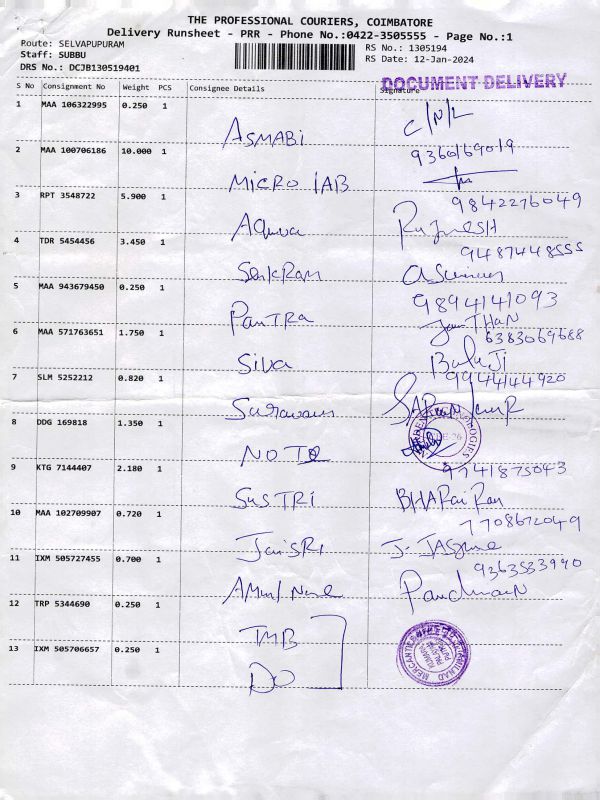 THE PROFESSIONAL COURIERS, COIMBATORE
Delivery Runsheet - PRR - Phone No.:0422-3505555 - Page No.:1
Route: SELVAPUPURAM
Staff: SUBBU
DRS No.: DCJB130519401
RS No.: 1305194
RS Date: 12-Jan-2024
DOCUMENT DELIVERY
S No Consignment No Weight PCS Consignee Details Signature
1 MAA 106322995 0.250 1
ASMABi C/N/L
2 MAA 100706186 10.000 1
MICRO LAB
3 RPT 3548722 5.900 1
9842276049
4 TDR 5454456 3.450 1
9487448555
5 MAA 943679450 0.250 1
9894141093
PanTRa
6 MAA 571763651 1.750 1
6383069688
Siva BalaJi
7 SLM 5252212 0.820 1
9944144920
8 DDG 169818 1.350 1
9 KTG 7144407 2.180 1
9741875043
SusTRi
10 MAA 102709907 0.720 1
7708672049
JaiSRi
11 IXM 505727455 0.700 1
9363533990
12 TRP 5344690 0.250 1
TMB
13 IXM 505706657 0.250 1
DO